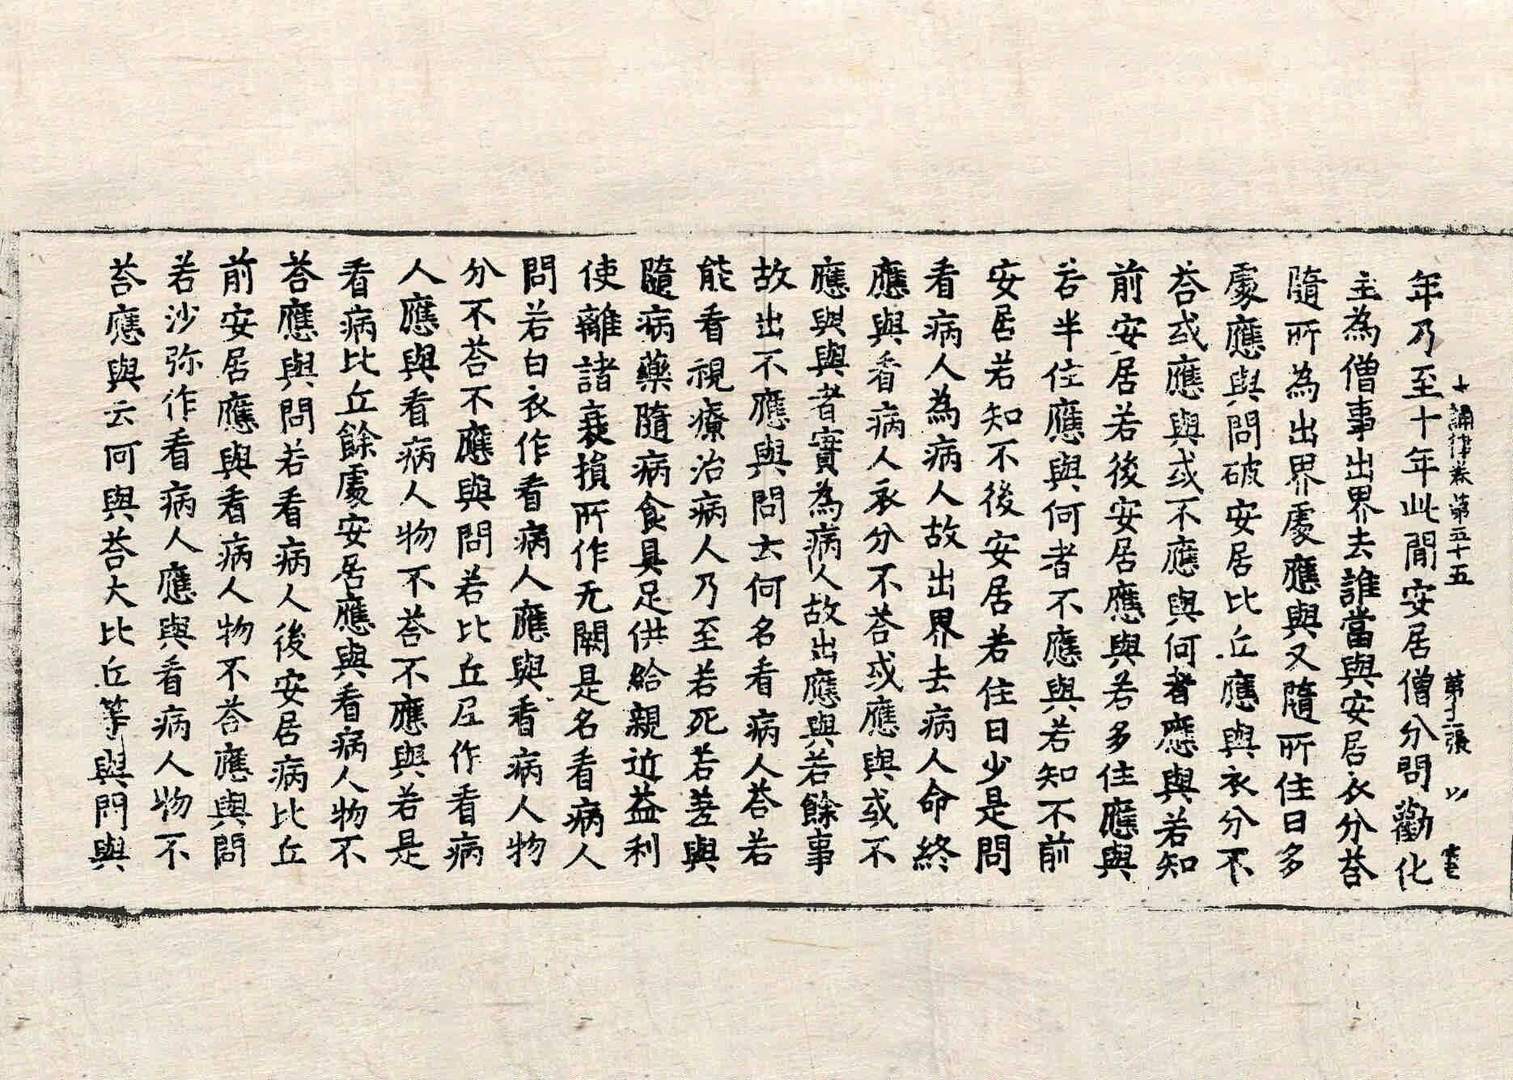 十誦律卷第五十五 第十二張 以
年乃至十年此閒安居僧分問勸化
主為僧事出界去誰當與安居衣分荅
隨所為出界處應與又隨所住日多
處應與問破安居比丘應與衣分不
荅或應與或不應與何者應與若知
前安居若後安居應與若多住應與
若半住應與何者不應與若知不前
安居若知不後安居若住日少是問
看病人為病人故出界去病人命終
應與看病人衣分不荅或應與或不
應與與者實為病人故出應與若餘事
故出不應與問云何名看病人荅若
能看視療治病人乃至若死若差與
隨病藥隨病食具足供給親近益利
使離諸衰損所作无闕是名看病人
問若白衣作看病人應與看病人物
分不荅不應與問若比丘尼作看病
人應與看病人物不荅不應與若是
看病比丘餘處安居應與看病人物不
荅應與問若看病人後安居病比丘
前安居應與看病人物不荅應與問
若沙弥作看病人應與看病人物不
荅應與云何與荅大比丘等與問與